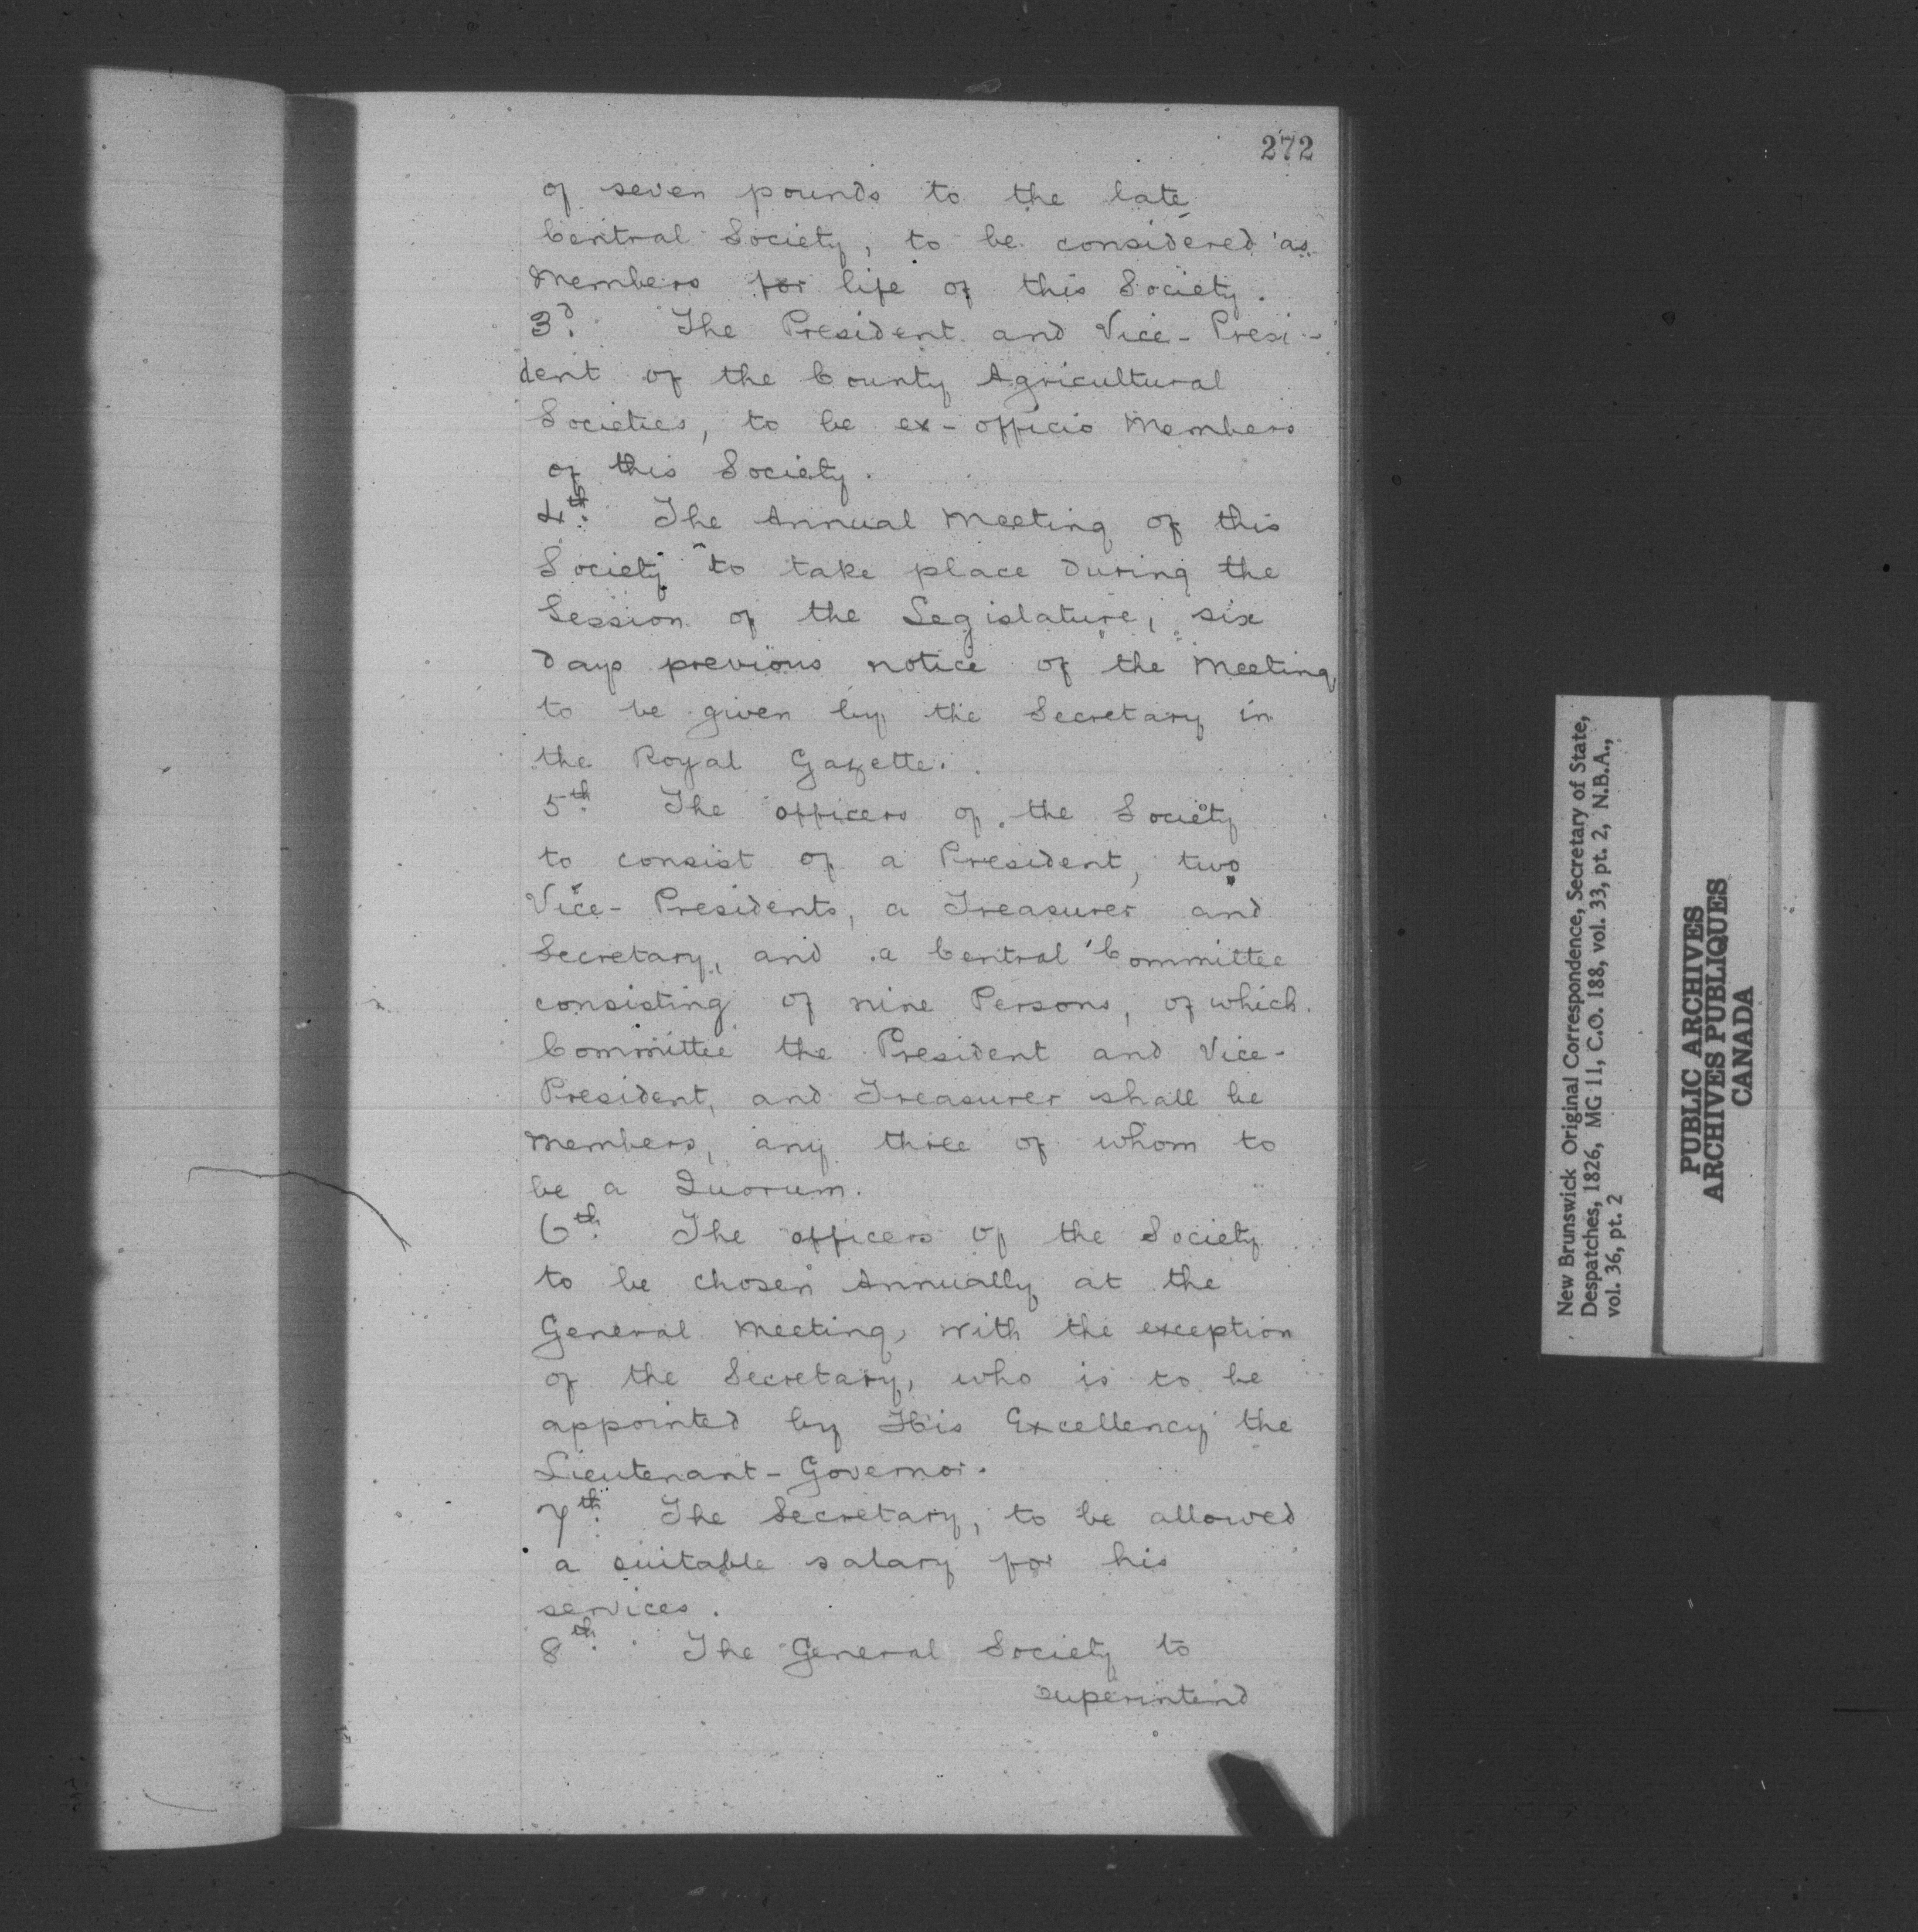 272
of seven pounds to the late
Central Society, to be considered as
Members for life of this Society.
3d. The President and Vice-Presi-
dent of the County Agricultural
Societies, to be ex-officio Members
of this Society.
4th. The Annual Meeting of this
Society to take place during the
Session of the Legislature, six
days previous notice of the Meeting
to be given by the Secretary in
the Royal Gazette.
5th. The officers of the Society
to consist of a President, two
Vice-Presidents, a Treasurer and
Secretary, and a Central Committee
consisting of nine Persons, of which
Committee the President and Vice-
President, and Treasurer shall be
Members, any three of whom to
be a Quorum.
6th. The officers of the Society
to be chosen Annually at the
General Meeting, with the exception
of the Secretary, who is to be
appointed by His Excellency the
Lieutenant-Governor.
7th. The Secretary, to be allowed
a suitable salary for his
services.
8th. The General Society to
superintend
New Brunswick Original Correspondence, Secretary of State,
Despatches, 1826, MG 11, C.O. 188, vol. 33, pt. 2, N.B.A.,
vol. 36, pt. 2
PUBLIC ARCHIVES
ARCHIVES PUBLIQUES
CANADA